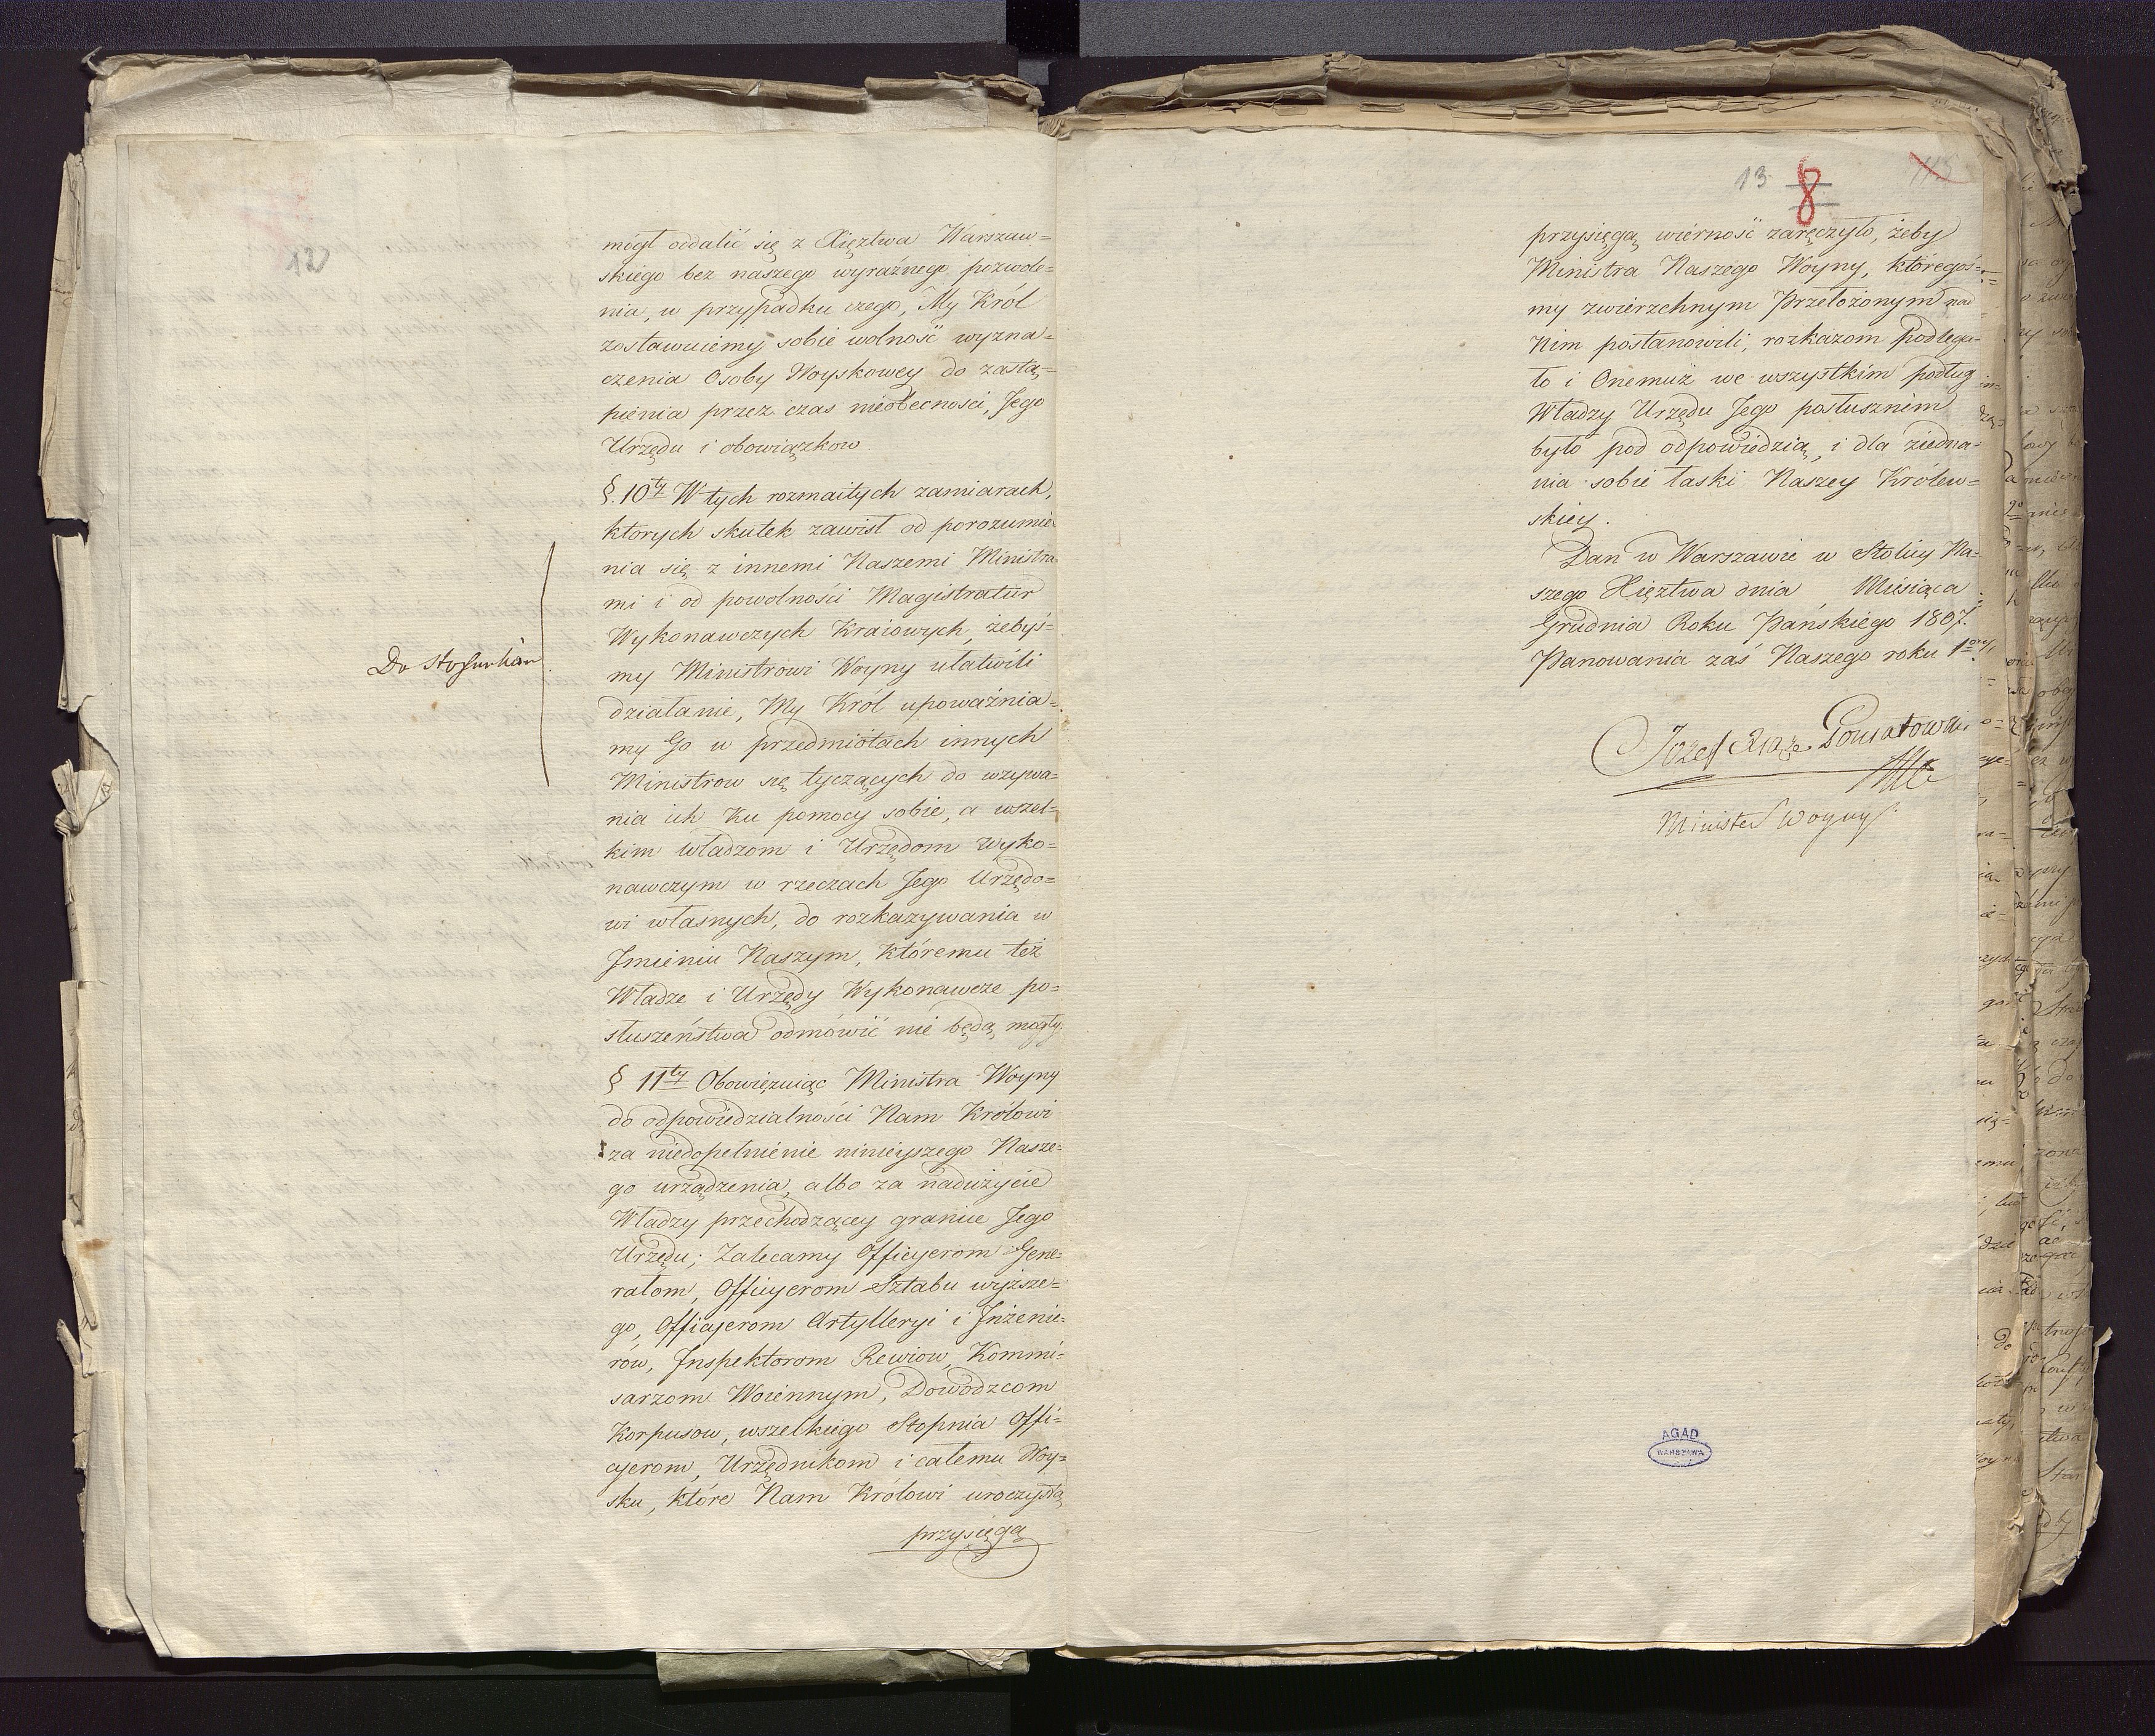 12
mógł oddalić się z Xięztwa Warszaw=
skiego bez naszego wyraźnego pozwole=
nia, w przypadku czego, My Król
zostawuiemy sobie wolność wyzna=
czenia Osoby Woyskowey do zastą=
pienia przez czas nieobecności, Jego
Urzędu i obowiązkow.
§. 10ty W tych rozmaitych zamiarach,
ktorych skutek zawisł od porozumie
nia się z innemi Naszemi Ministra
mi i od powolności Magistratur
Wykonawczych Kraiowych, żebyś=
my Ministrowi Woyny ułatwili
działanie, My Król upoważnia=
my Go w przedmiotach innych
Ministrow się tyczących do wzywa=
nia ich Ku pomocy sobie, a wszel=
kim władzom i Urzędom Wyko=
nawczym w rzeczach Jego Urzędo=
wi własnych, do rozkazywania w
Jmieniu Naszym, Któremu też
Władze i Urzędy Wykonawcze po=
słuszeństwa odmówić nie będą mogły.
§ 11ty Obowięzuiąc Ministra Woyny
do odpowiedzialności Nam Królowi
za niedopełnienie ninieyszego Nasze=
go urządzenia, albo za nadużycie
Władzy przechodzącey granice Jego
Urzędu; Zalecamy Officyerom Gene=
rałom, Officyerom Sztabu wyższe=
go, Officyerom Artylleryi i Jnżenie=
rów, Jnspektorom Rewiow, Kommi=
sarzom Woiennym, Dowodzcom
Korpusow, wszelkiego Stopnia Offi=
cyerom, Urzędnikom i całemu Woy=
sku, które Nam Królowi uroczystą
przysięgą
Do stosunków
13 8
przysięgą wierność zaręczyło, żeby
Ministra Naszego Woyny, któregoś=
my zwierzchnym Przełożonym nad
Nim postanowili, rozkazom podlega-
ło i Onemuż we wszystkim podług
Władzy Urzędu Jego posłusznem
było pod odpowiedzią, i dla ziedna-
nia sobie łaski Naszey Królew=
skiey.
Dan w Warszawie w Stolicy Na=
szego Xięztwa dnia Miesiąca
Grudnia Roku Pańskiego 1807.
Panowania zaś Naszego roku 1o
Jozef Xiąże Poniatowski
Minister Woyny
AGAD
WARSZAWA